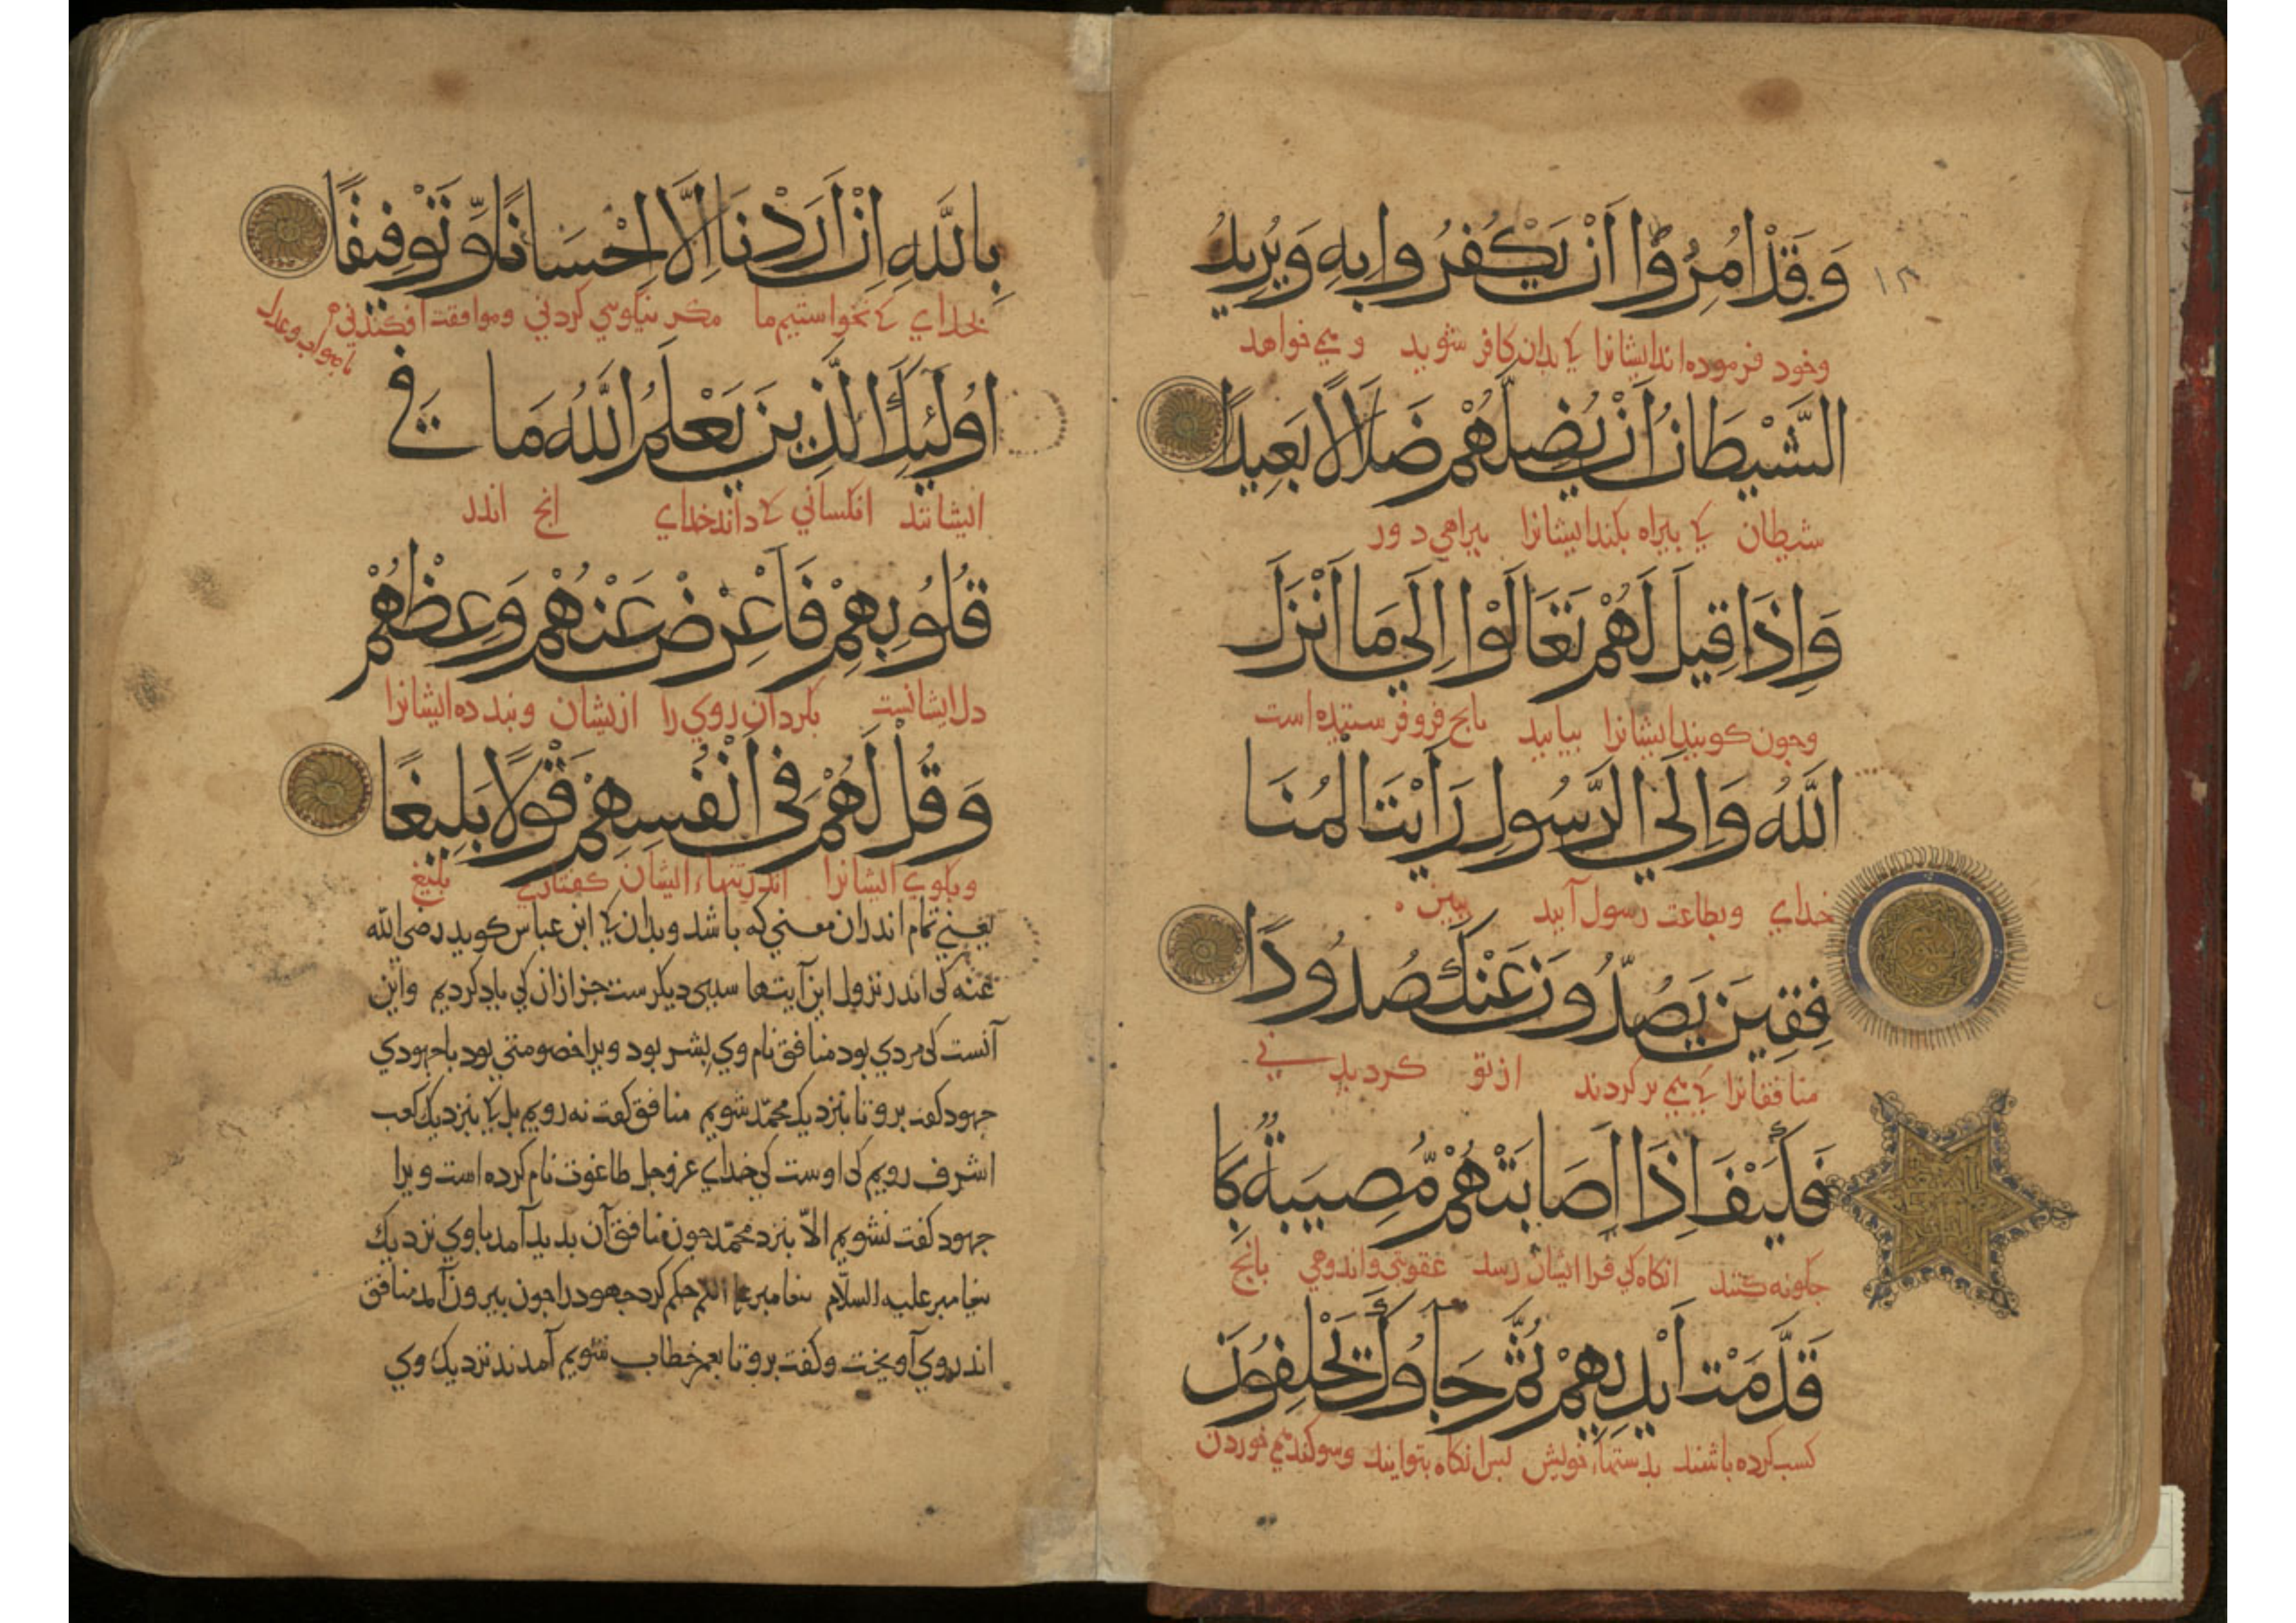 وَقَدْ اُمِرُوْا اَنْ يَكْفُرُوا بِهِ وَيُرِيدُ
وخود فرموده اند ایشانرا کی بدان کافر شوید و می خواهد
الشَّيْطَانُ اَنْ يُضِلَّهُمْ ضَلَالًا بَعِيدًا
شیطان کی بیراه بکند ایشانرا بیراهی دور
وَاِذَا قِيلَ لَهُمْ تَعَالَوْا اِلَى مَا اَنْزَلَ
وجون کویند ایشانرا بیایید بانج فرو فرستیده است
اللَّهُ وَاِلَى الرَّسُولِ رَاَيْتَ الْمُنَا
خدای وبطاعت رسول آیید ببینی
فِقِينَ يَصُدُّونَ عَنْكَ صُدُودًا
منافقانرا کی می برکردند از تو کردیدنی
فَكَيْفَ اِذَا اَصَابَتْهُمْ مُّصِيبَةٌ بِمَا
جکونه کنند انکاه کی فرا ایشان رسد عقوبتی واندوهی بانج
قَدَّمَتْ اَيْدِيهِمْ ثُمَّ جَآؤُكَ يَحْلِفُونَ
کسب کرده باشند بدستهاء خویش پس انکاه بتو آیند وسوکند می خوردن
بِاللَّهِ اِنْ اَرَدْنَا اِلَّا اِحْسَانًا وَّتَوْفِيقًا
بخدای کی نخواستیم ما مکر نیکوی کردنی وموافقت افکندنی
اُولَئِكَ الَّذِينَ يَعْلَمُ اللَّهُ مَا فِي
ایشانند انکسانی کی داند خدای انج اندر
قُلُوبِهِمْ فَاَعْرِضْ عَنْهُمْ وَعِظْهُمْ
دل ایشانست بکردان روی را ازیشان وبند ده ایشانرا
وَقُلْ لَهُمْ فِى اَنْفُسِهِمْ قَوْلًا بَلِيغًا
وبکوی ایشانرا اندر تنهاء ایشان کفتاری بلیغ
یعنی تمام اندران معنی که باشد وبدان کی ابن عباس کوید رضی الله
عنه کی اندر نزول این آیتها سببی دیکرست جز ازان کی یاد کردیم واین
آنست کی مردی بود منافق نام وی بشر بود ویرا خصومتی بود با جهودی
جهود کفت برو تا بنزدیک محمد شویم منافق کفت نه رویم بل کی بنزدیک کعب
اشرف رویم کی اوست کی خدای عز وجل طاغوت نام کرده است ویرا
جهود کفت نشویم الّا بنزد محمّد جون منافق آن بدید آمد با وی نزدیک
بیغامبر علیه السلام بیغامبر علیه السلم حکم کرد جهود را جون بیرون آمد منافق
اندر وی آویخت وکفت برو تا بعمر خطاب شویم آمدند نزدیک وی